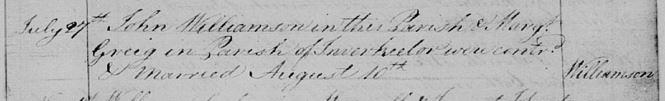 July 27th John Williamson in this Parish & Margt.
Greig in Parish of Inverkeelor were contrd.
& Married August 10th Williamson